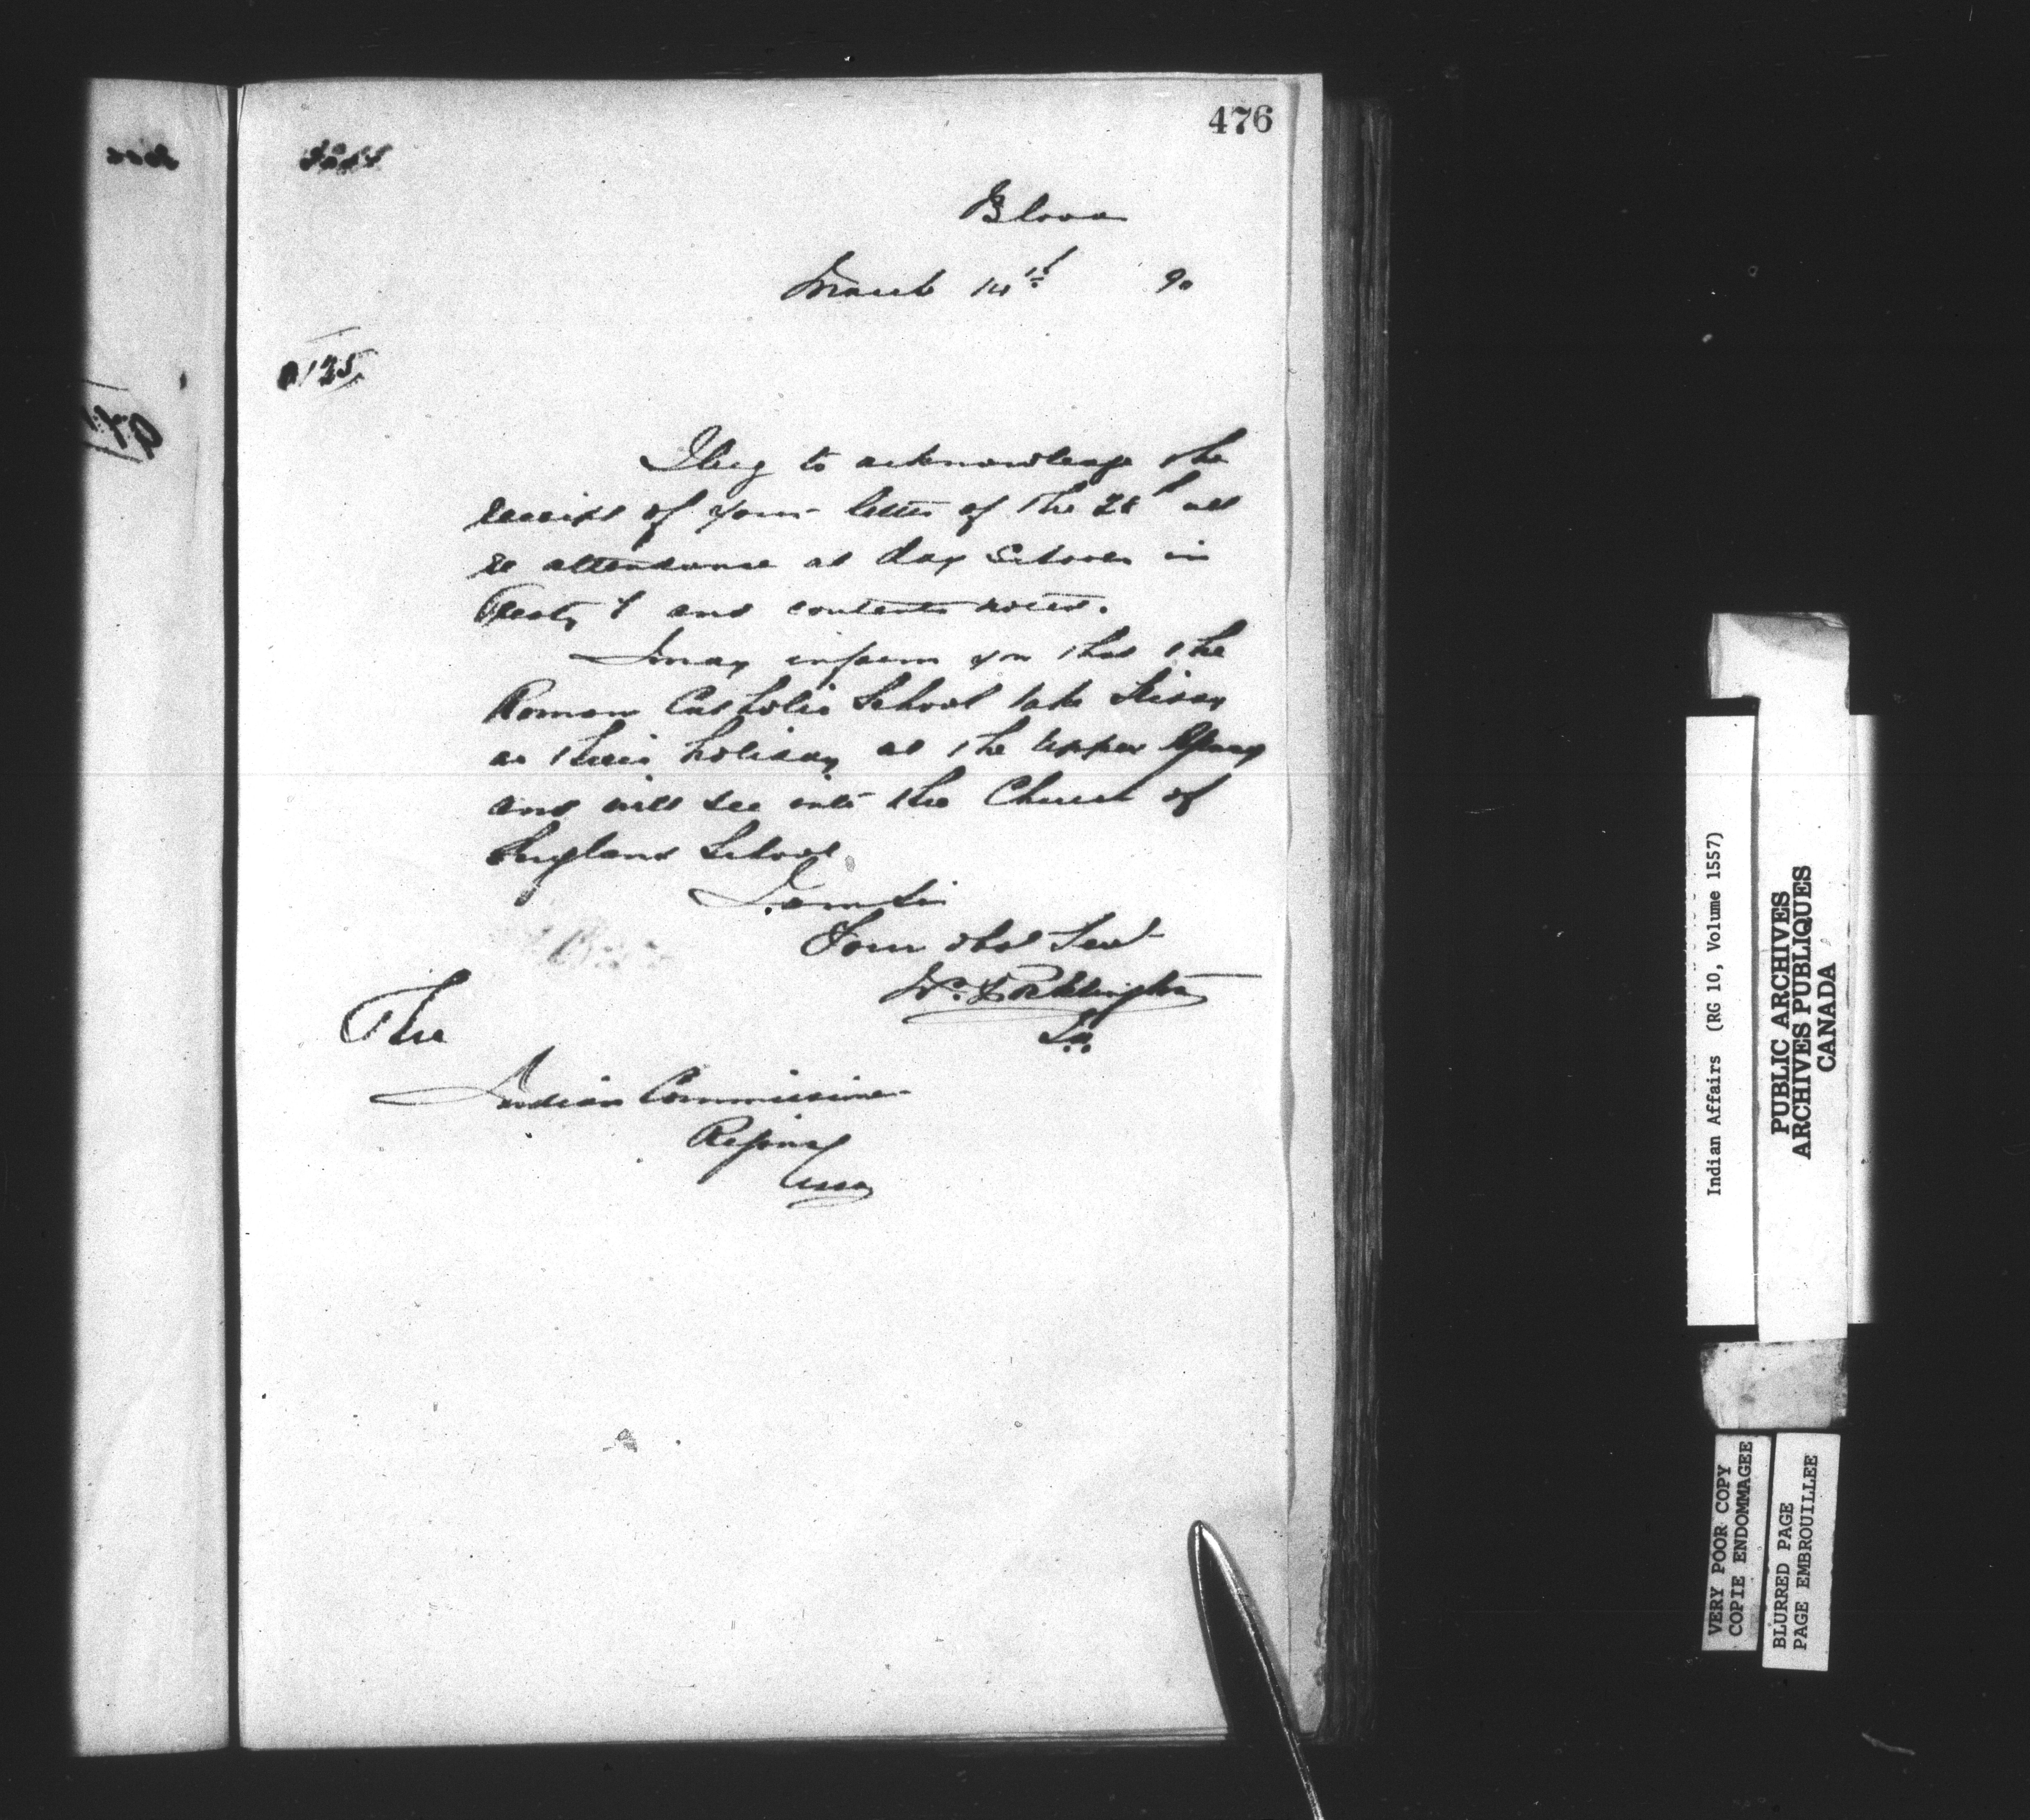 476
Blood
March 14th 90
I beg to acknowledge the
receipt of your letter of the 28th ult
re attendance at day Schools in
Treaty 7 and contents noted.
I may inform you that the
Roman Catholic School take
as their holiday at the Upper Agency
and will see into the Church of
England School.
I am Sir
Your obed Servt
Wm Pocklington
I.A.
The
Indian Commissioner
Regina
Assa
Indian Affairs (RG 10, Volume 1557)
PUBLIC ARCHIVES
ARCHIVES PUBLIQUES
CANADA
VERY POOR COPY
COPIE ENDOMMAGEE
BLURRED PAGE
PAGE EMBROUILLEE